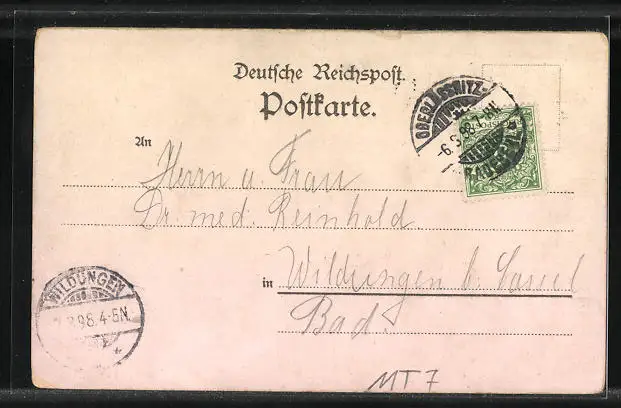 Deutsche Reichspost.
Postkarte.
OBERLÖSSNITZ-
-6.9.98.
An
Herrn u. Frau
Dr. med. Reinhold
in Wildungen b. Cassel
Bad.
WILDUNGEN
98.4-5N.
MT 7